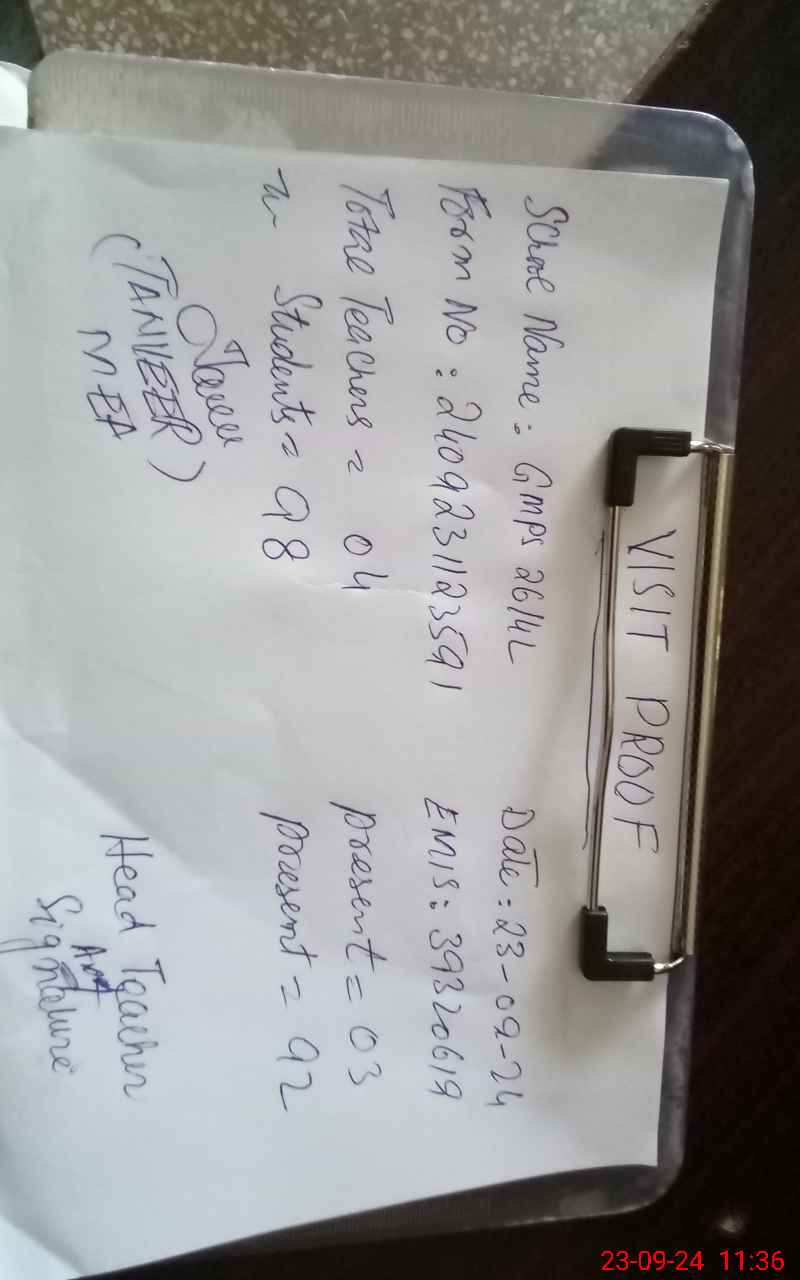 VISIT PROOF
School Name : GMPS 26/4L Date : 23-09-24
Form No : 2409231123591 EMIS : 39320619
Total Teachers = 04 present = 03
" Students = 98 present = 92
(TANVEER)
MEA
Head Teacher
Signature
23-09-24 11:36